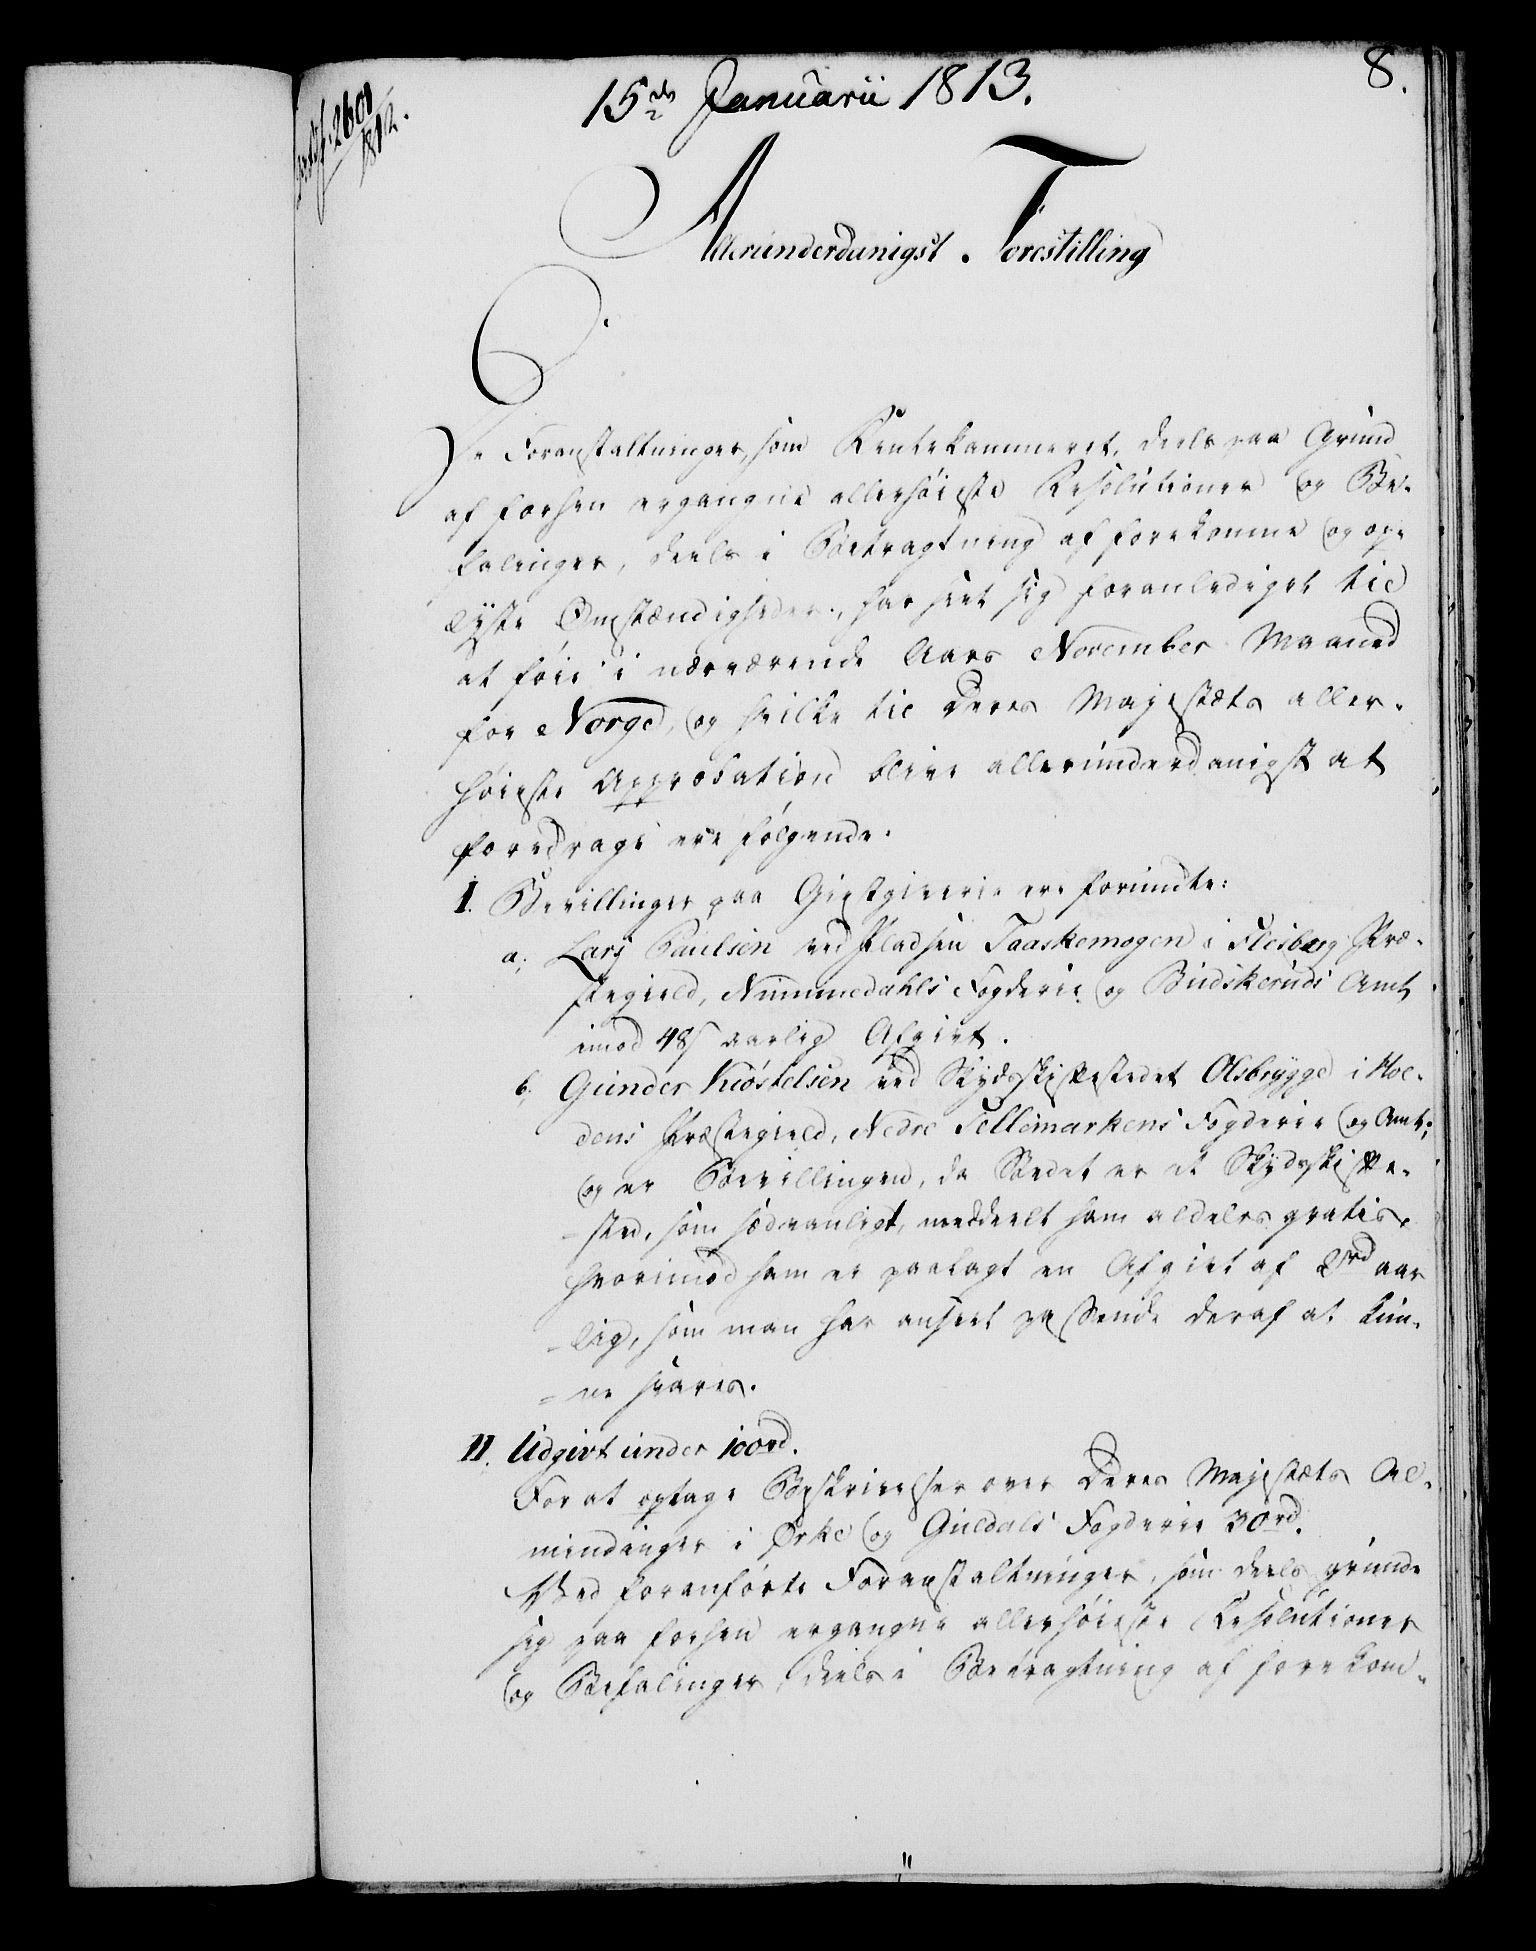 15de Januarii 1813.
8.
2601
1812.
Allerunderdanigst Forestilling
De Foranstaltninger, som Rentekammeret, deels paa Grund
af forhen ergangne allerhöieste Resolutioner og Be-
falinger, deels i Betragtning af forekomne og op-
lyste Omstændigheder, har seet sig foranlediget til
at föie i nærværende Aars November Maaned
for Norge, og hvilke til Deres Majestæts aller-
höieste Approbation blive allerunderdanigst at
foredrage ere fölgende.
I. Bevillinger paa Giestgiverie ere forundte:
a, Lars Paulsen ved Pladsen Taaskemogen i Flesberg Præ-
stegield, Nummedahls Fogderie og Budskeruds Amt
imod 48 s aarlig Afgivt.
b, Gunder Kiöstelsen ved Skydsskiftestedet Olsbrygge i Hol-
dens Præstegield, Nedre Tellemarkens Fogderie og Amt;
og er Bevillingen, da Stedet er et Skydsskifte-
-sted, som sædvanligt, meddeelt ham aldeles gratis,
hvorimod ham er paalagt en Afgivt af 2rd aar
-lig, som man har anseet passende deraf at kun-
-ne svares.
II. Udgivt under 100rd.
For at optage Beskrivelser over Deres Majestæts Al-
mindinger i Örke og Guldals Fogderie 30rd.
Med foranförte Foranstaltninger, som deels grunde
sig paa forhen ergangne allerhöieste Resolutioner
og Befalinger, deels i Betragtning af forekom-